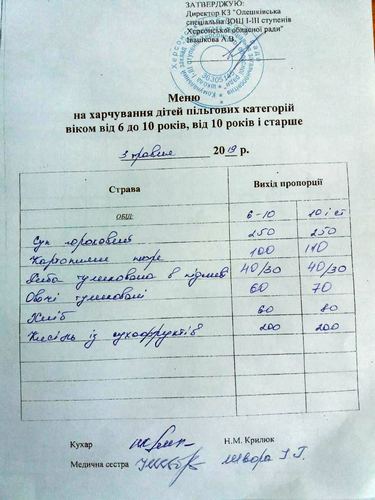 ЗАТВЕРДЖУЮ:
Директор КЗ "Олешківська
спеціальна ЗОШ І-ІІІ ступенів
"Херсонської обласної ради"
Івашкова Л.В.
Меню
на харчування дітей пільгових категорій
віком від 6 до 10 років, від 10 років і старше
3 травня 2019 р.
Страва Вихід пропорції
ОБІД: 6-10 10 і ст
Суп гороховий 250 250
Картопляне пюре 100 110
Риба тушкована в підливі 40/30 40/30
Овочі тушковані 60 70
Хліб 60 80
Кисіль із сухофруктів 200 200
Кухар Н.М. Крилюк
Медична сестра